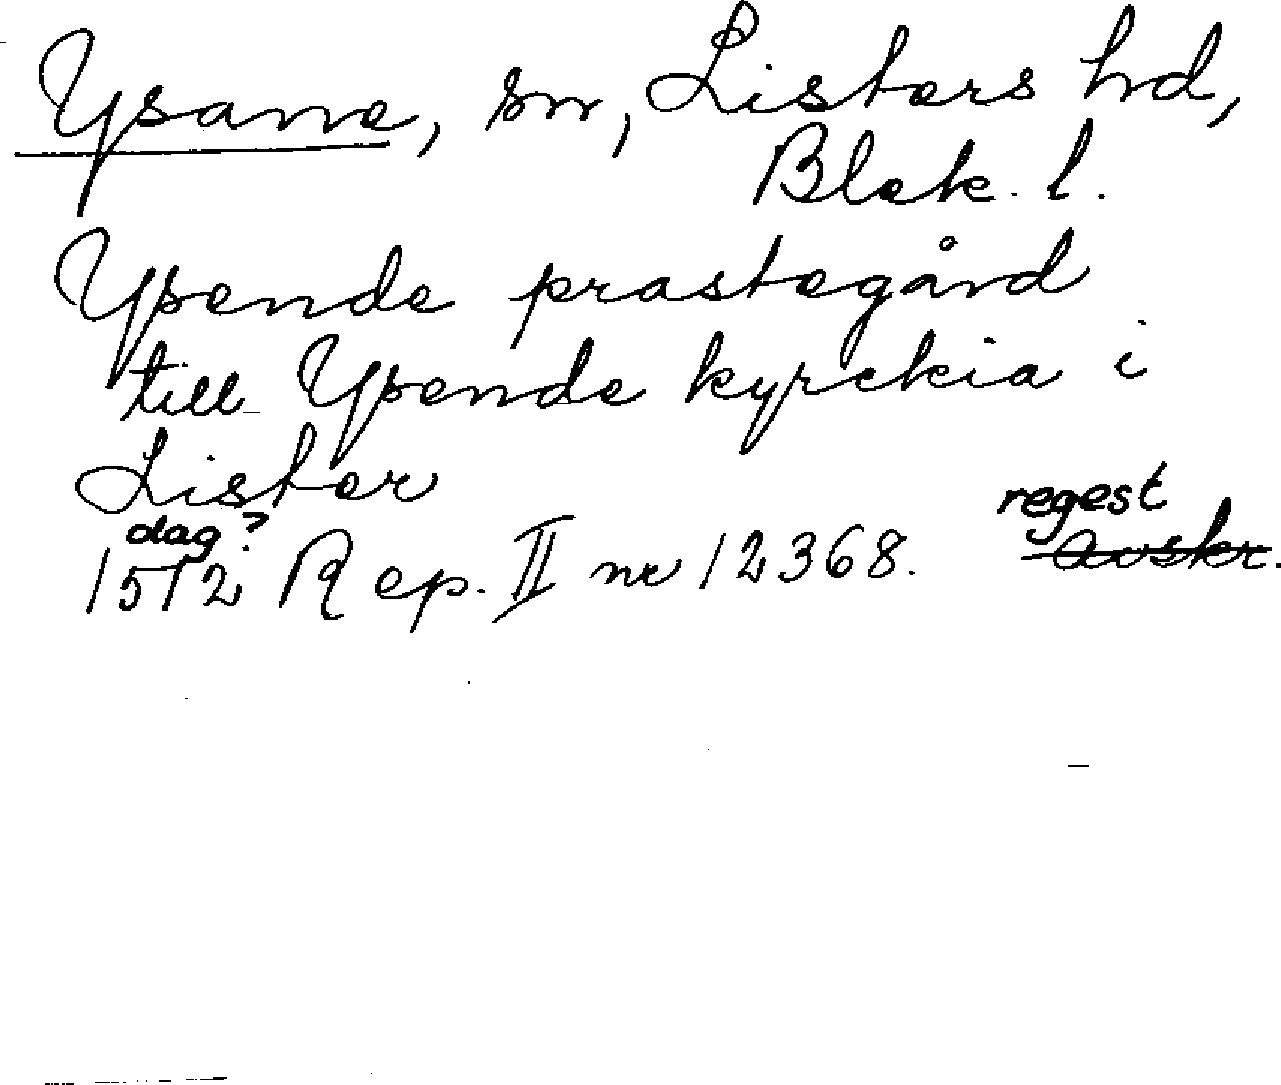 Ysane, sn, Listers hd,
Blek. l.
Ysende prastegård
till Ysende kyrckia i
Lister
dag?
1512 Rep. II nr 12368.
regest
Avskr.